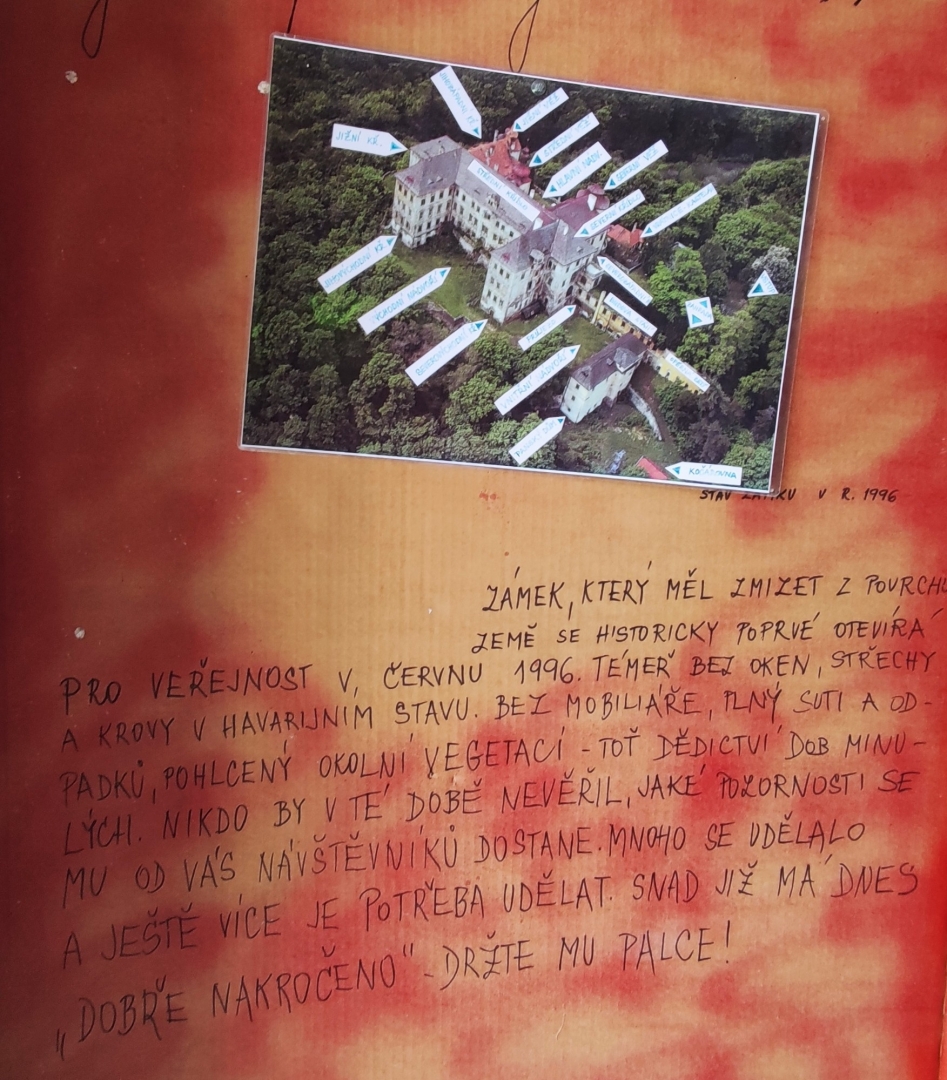 JIŽNÍ KŘ.
HLAVNÍ NÁDV.
SEVERNÍ KŘÍDLO
VÝCHODNÍ NÁDVOŘÍ
PANSKÝ DŮM
KOČÁROVNA
STAV ZÁMKU V R. 1996
ZÁMEK, KTERÝ MĚL ZMIZET Z POVRCHU
ZEMĚ SE HISTORICKY POPRVÉ OTEVÍRÁ
PRO VEŘEJNOST V, ČERVNU 1996. TÉMĚŘ BEZ OKEN, STŘECHY
A KROVY V HAVARIJNÍM STAVU. BEZ MOBILIÁŘE, PLNÝ SUTI A OD-
PADKŮ, POHLCENÝ OKOLNÍ VEGETACÍ - TOŤ DĚDICTVÍ DOB MINU-
LÝCH. NIKDO BY V TÉ DOBĚ NEVĚŘIL, JAKÉ POZORNOSTI SE
MU OD VÁS NÁVŠTĚVNÍKŮ DOSTANE. MNOHO SE UDĚLALO
A JEŠTĚ VÍCE JE POTŘEBA UDĚLAT. SNAD JIŽ MÁ DNES
„DOBŘE NAKROČENO" - DRŽTE MU PALCE!